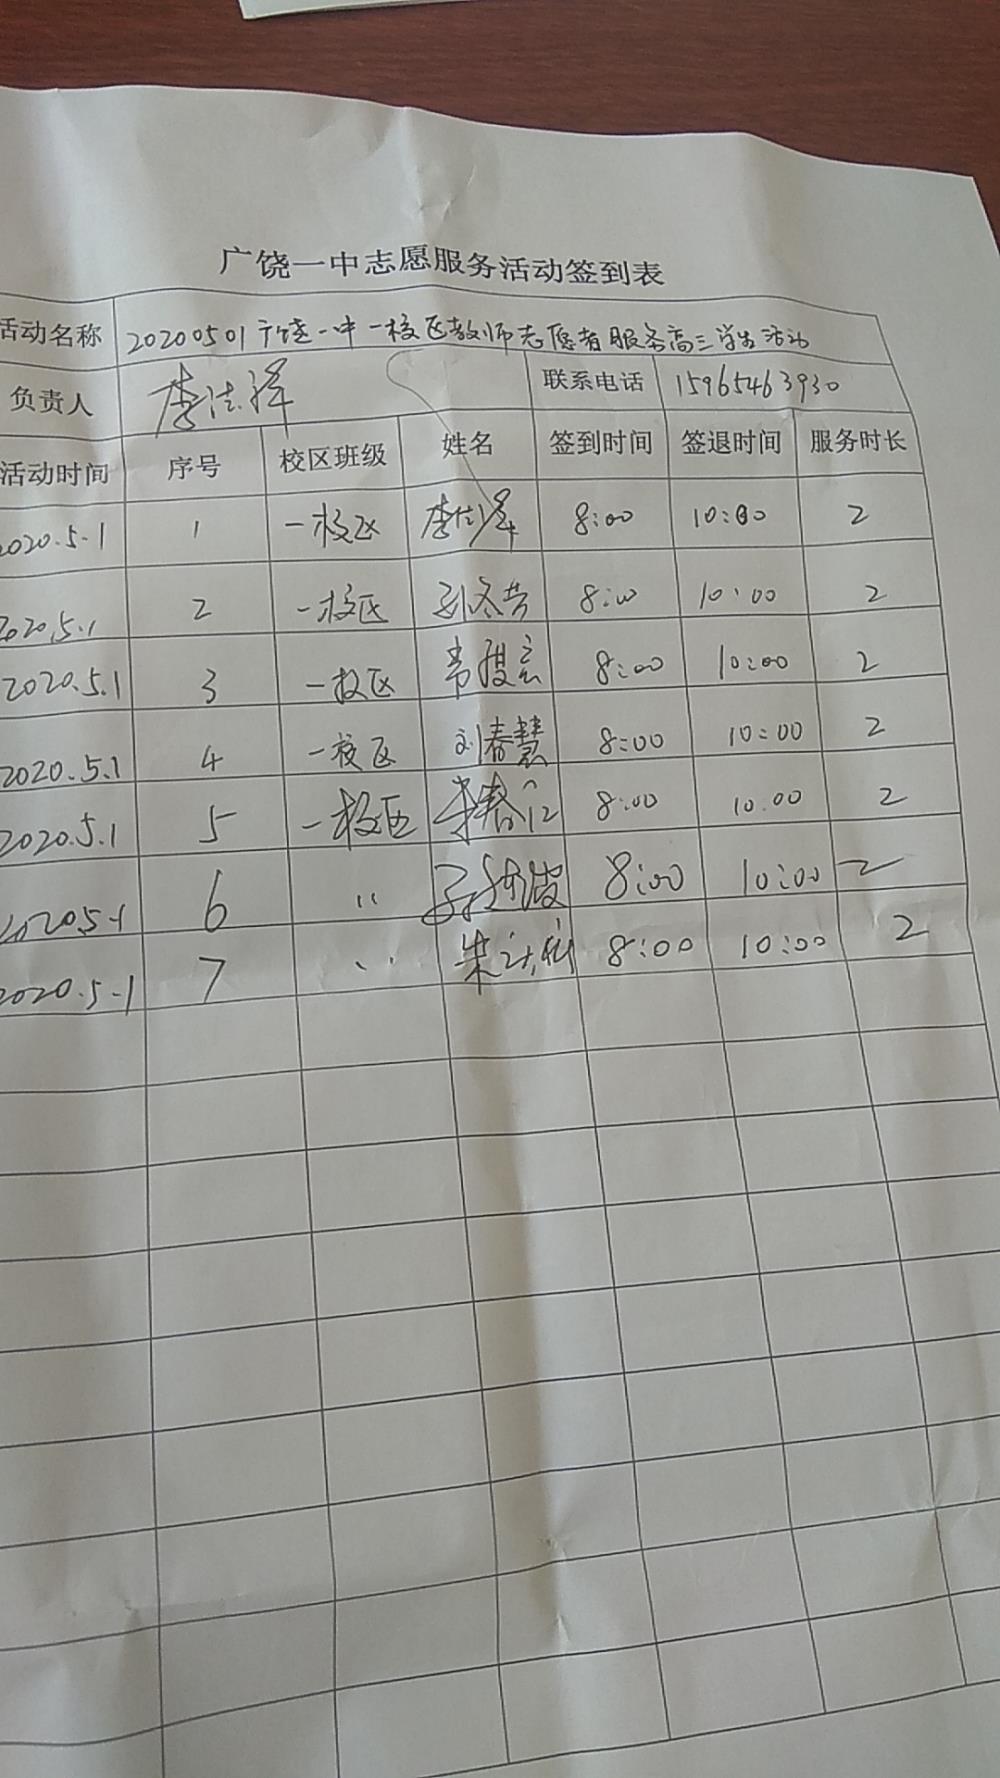 广饶一中志愿服务活动签到表
活动名称 20200501广饶一中一校区教师志愿者服务高三学生活动
负责人 李 泽 联系电话 15965463930
活动时间 序号 校区班级 姓名 签到时间 签退时间 服务时长
2020.5.1 1 一校区 李 泽 8:00 10:00 2
2020.5.1 2 一校区 8:00 10:00 2
2020.5.1 3 一校区 8:00 10:00 2
2020.5.1 4 一校区 刘春慧 8:00 10:00 2
2020.5.1 5 一校区 李春 8:00 10.00 2
2020.5.1 6 〃 8:00 10:00 2
2020.5.1 7 〃 朱 8:00 10:00 2